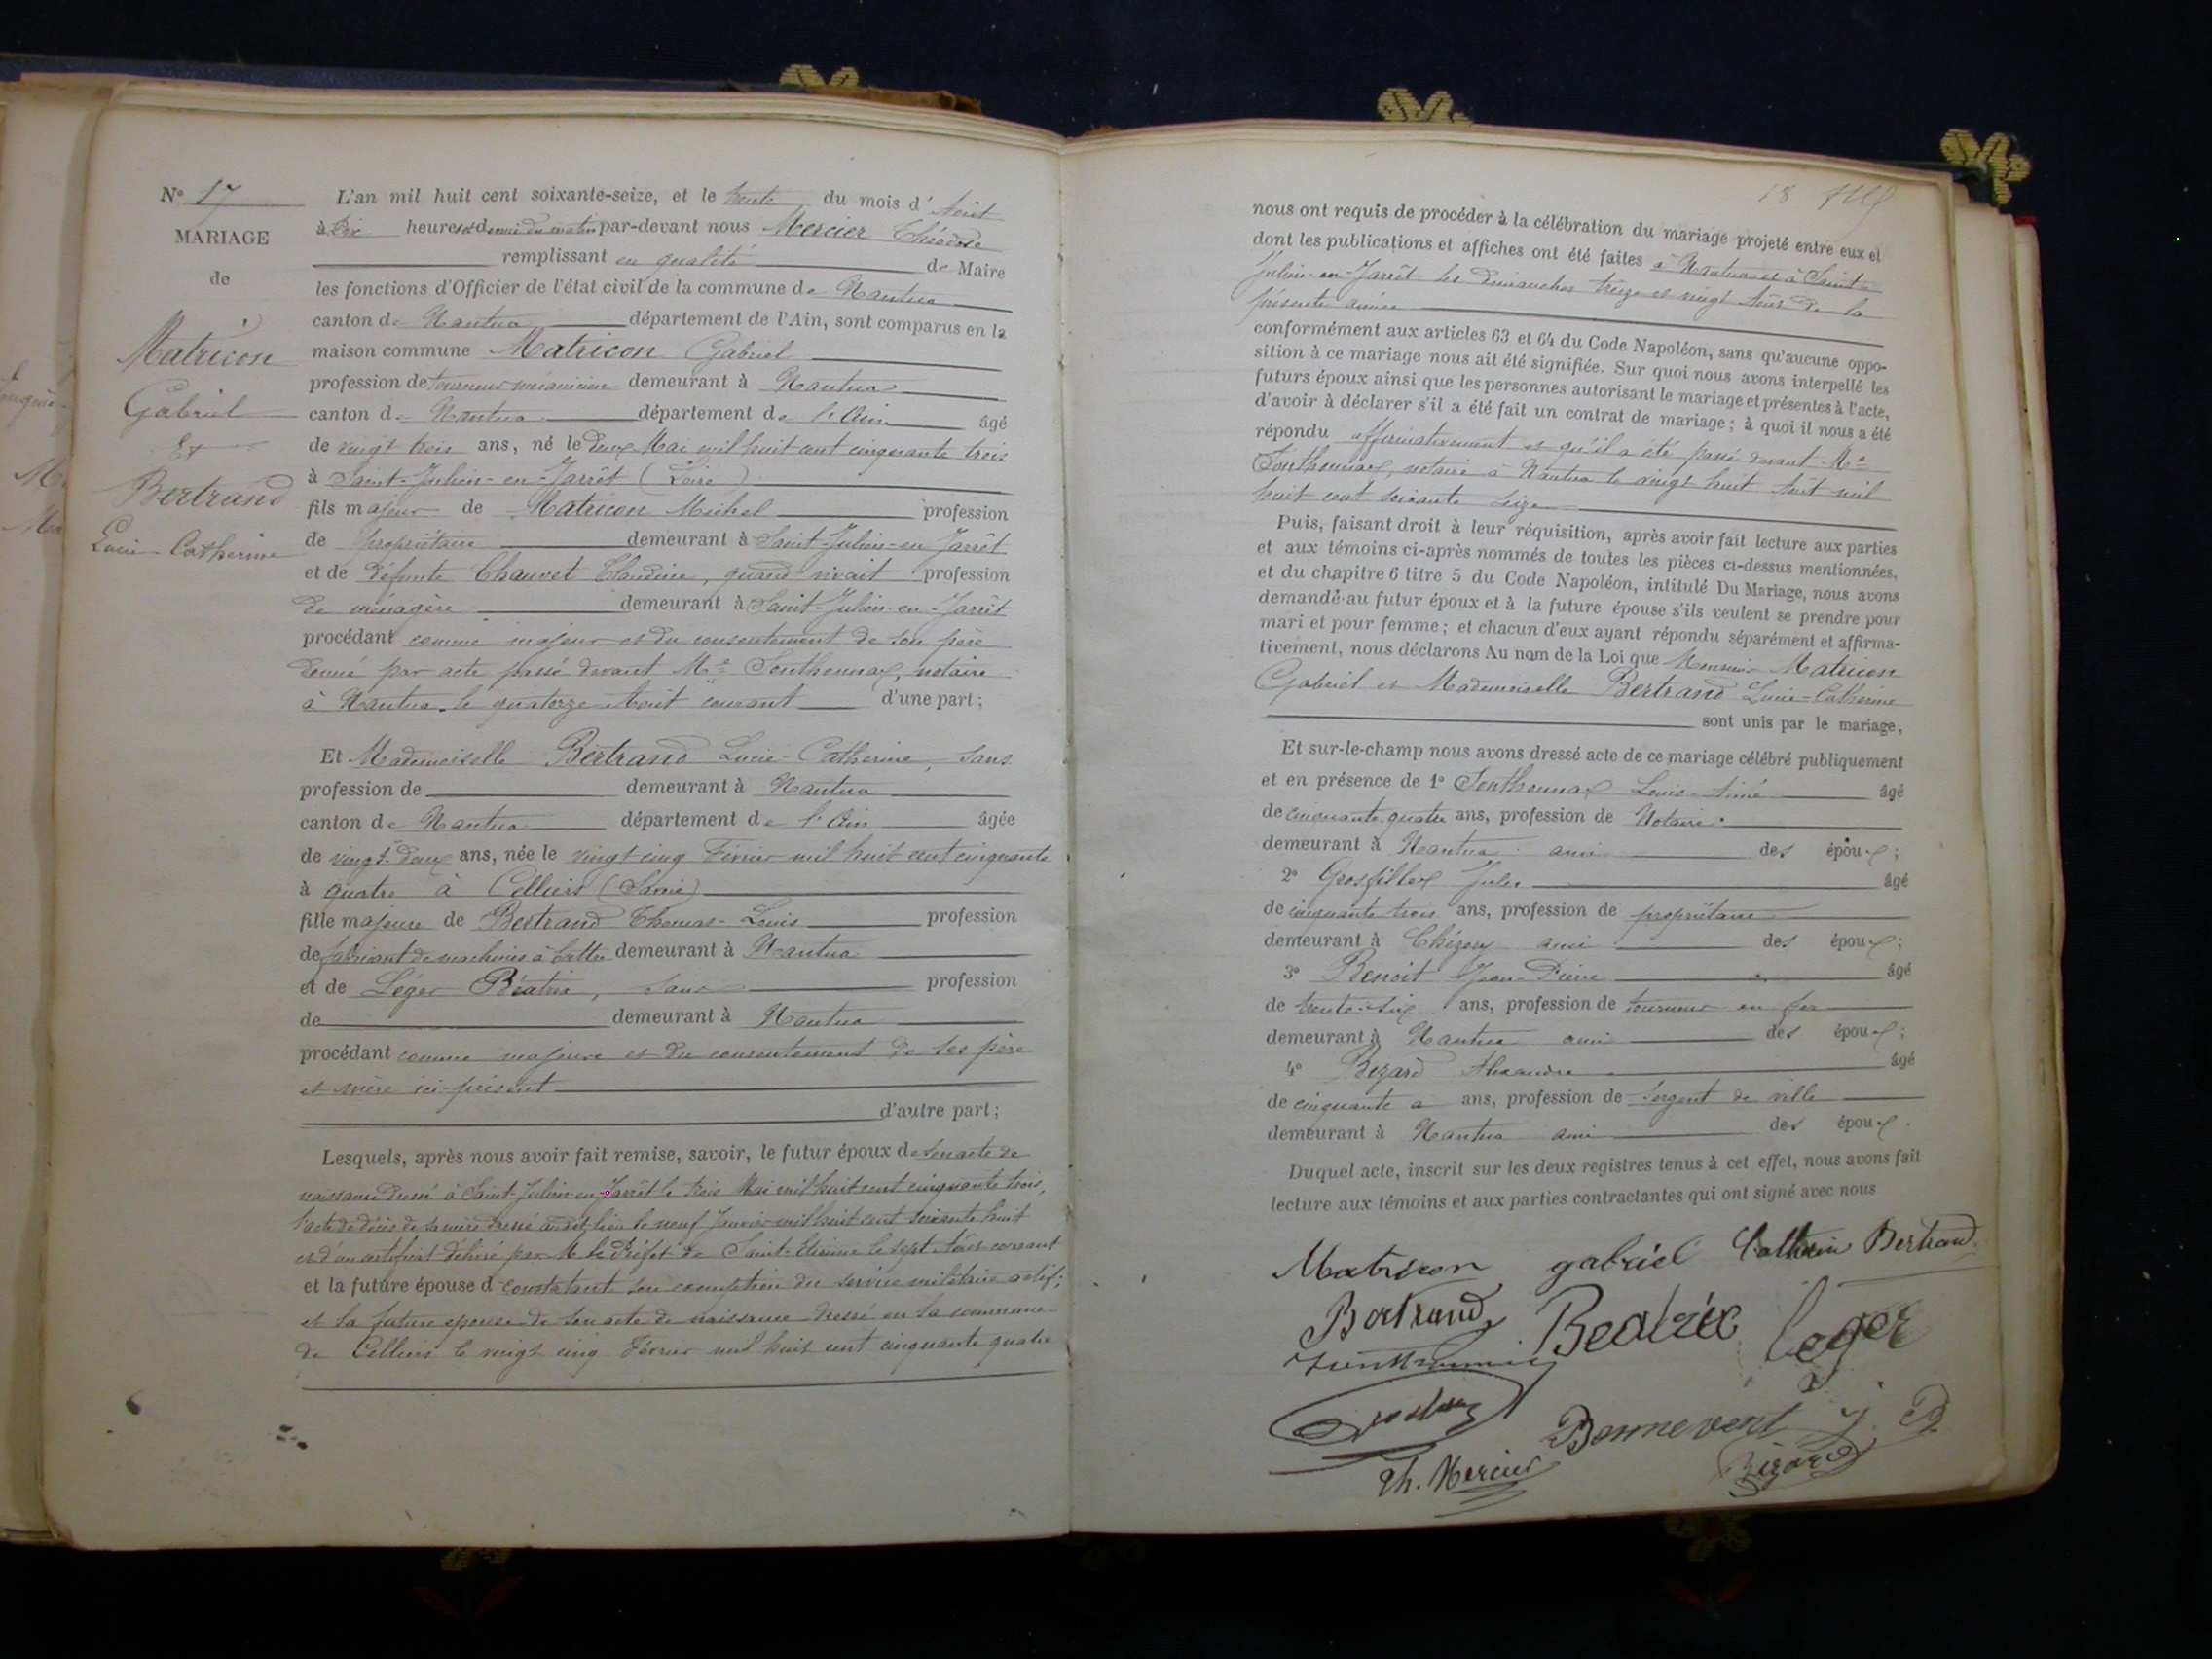 N° 17
MARIAGE
de
Matricon
Gabriel
Et
Bertrand
Lucie-Catherine
L'an mil huit cent soixante-seize, et le trente du mois d' Août
à dix heures et demie du matin par-devant nous Mercier Théodose
remplissant en qualité de Maire
les fonctions d'Officier de l'état civil de la commune de Nantua
canton de Nantua département de l'Ain, sont comparus en la
maison commune Matricon Gabriel
profession de tourneur mécanicien demeurant à Nantua
canton de Nantua département de l'Ain âgé
de vingt trois ans, né le deux Mai mil huit cent cinquante trois
à Saint-Julien-en-Jarrêt (Loire)
fils majeur de Matricon Michel profession
de propriétaire demeurant à Saint-Julien-en Jarrêt
et de défunte Chauvet Claudine, quand vivait profession
de ménagère demeurant à Saint-Julien-en-Jarrêt
procédant comme majeur et du consentement de son père
donné par acte passé devant Me Sonthonnax, notaire
à Nantua, le quatorze Août courant d'une part;
Et Mademoiselle Bertrand Lucie-Catherine, sans
profession de demeurant à Nantua
canton de Nantua département de l'Ain âgée
de vingt-deux ans, née le vingt cinq Février mil huit cent cinquante
à quatre à Celliers (Savoie)
fille majeure de Bertrand Thomas-Louis profession
de fabricant de machines à battre demeurant à Nantua
et de Léger Béatrix, sans profession
de demeurant à Nantua
procédant comme majeure et du consentement de ses père
et mère ici-présent
d'autre part;
Lesquels, après nous avoir fait remise, savoir, le futur époux de son acte de
naissance dressé à Saint-Julien-en-Jarrêt le trois Mai mil huit cent cinquante trois,
l'acte de décès de sa mère dressé audit lieu le neuf Janvier mil huit cent soixante huit
et d'un certificat délivré par M. le Préfet de Saint-Etienne le sept Août courant
et la future épouse d constatant son exemption du service militaire actif;
et la future épouse de son acte de naissance dressé en la commune
de Celliers le vingt cinq Février mil huit cent cinquante quatre
18
nous ont requis de procéder à la célébration du mariage projeté entre eux et
dont les publications et affiches ont été faites à Nantua et à Saint-
Julien-en-Jarrêt les dimanches treize et vingt Août de la
présente année
conformément aux articles 63 et 64 du Code Napoléon, sans qu'aucune oppo-
sition à ce mariage nous ait été signifiée. Sur quoi nous avons interpellé les
futurs époux ainsi que les personnes autorisant le mariage et présentes à l'acte,
d'avoir à déclarer s'il a été fait un contrat de mariage; à quoi il nous a été
répondu affirmativement et qu'il a été passé devant Me
Sonthonnax, notaire à Nantua le vingt huit Août mil
huit cent soixante seize
Puis, faisant droit à leur réquisition, après avoir fait lecture aux parties
et aux témoins ci-après nommés de toutes les pièces ci-dessus mentionnées,
et du chapitre 6 titre 5 du Code Napoléon, intitulé Du Mariage, nous avons
demandé au futur époux et à la future épouse s'ils veulent se prendre pour
mari et pour femme; et chacun d'eux ayant répondu séparément et affirma-
tivement, nous déclarons Au nom de la Loi que Monsieur Matricon
Gabriel et Mademoiselle Bertrand Lucie-Catherine
sont unis par le mariage,
Et sur-le-champ nous avons dressé acte de ce mariage célébré publiquement
et en présence de 1° Sonthonnax Louis-Aimé âgé
de cinquante quatre ans, profession de Notaire
demeurant à Nantua ami des époux;
2° Grosfillex Jules âgé
de cinquante trois ans, profession de propriétaire
demeurant à Chézery ami des époux;
3° Benoit Jean-Pierre âgé
de trente-six ans, profession de tourneur en fer
demeurant à Nantua ami des époux;
4° Bezard Alexandre âgé
de cinquante a ans, profession de Sergent de ville
demeurant à Nantua ami des époux.
Duquel acte, inscrit sur les deux registres tenus à cet effet, nous avons fait
lecture aux témoins et aux parties contractantes qui ont signé avec nous
Matricon gabriel Catherine Bertrand
Bertrand Beatrix Leger
Bonnevent J. P.
Bézard
Th. Mercier